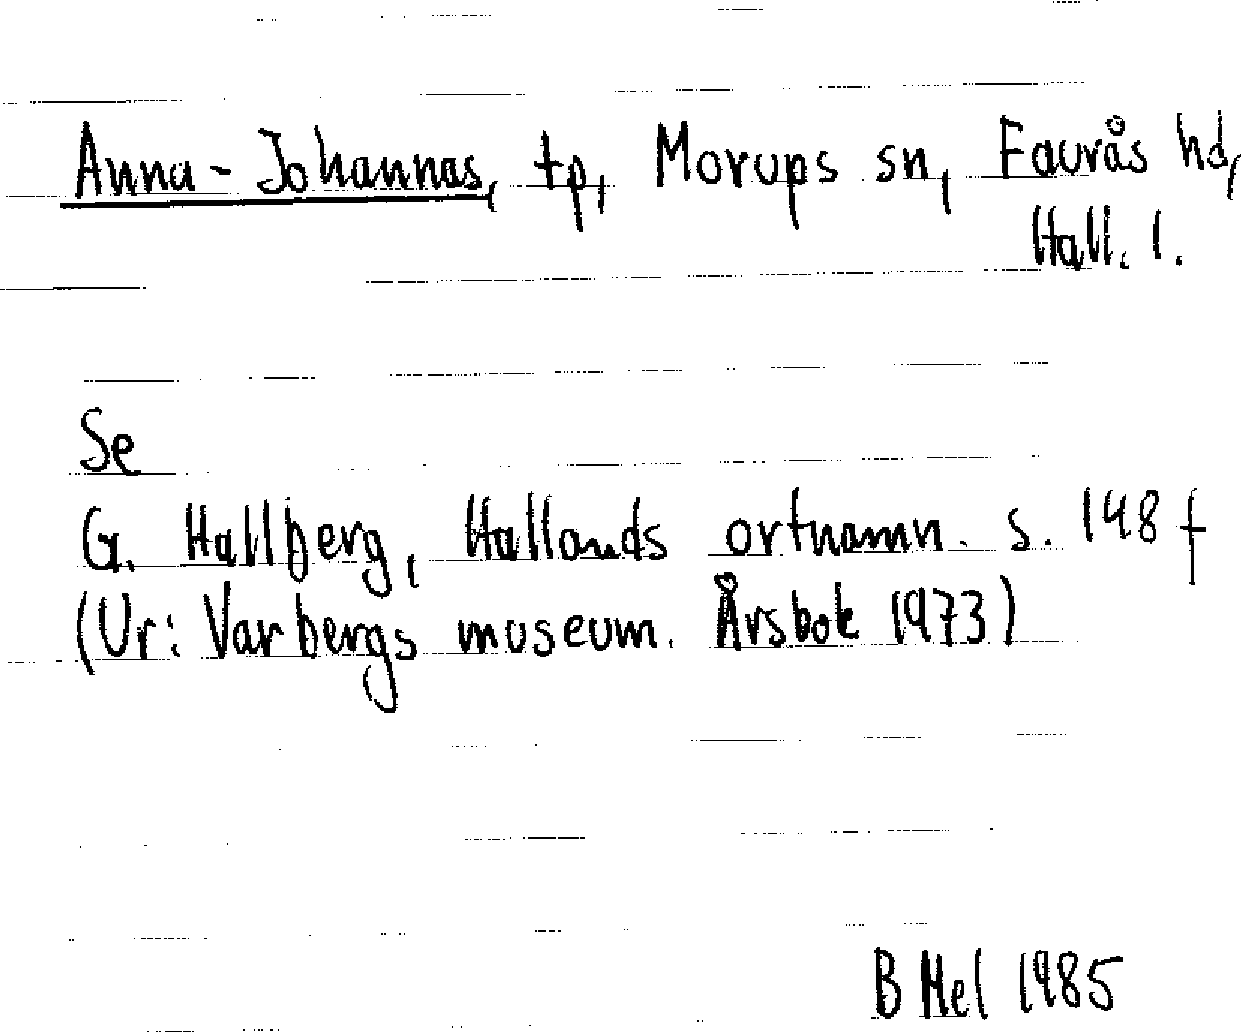 Anna-Johannas, tp, Morups sn, Faurås hd,
Hall. l.
Se
G. Hallberg, Hallands ortnamn. s. 148 f
(Ur: Varbergs museum. Årsbok 1973)
B Hel 1985